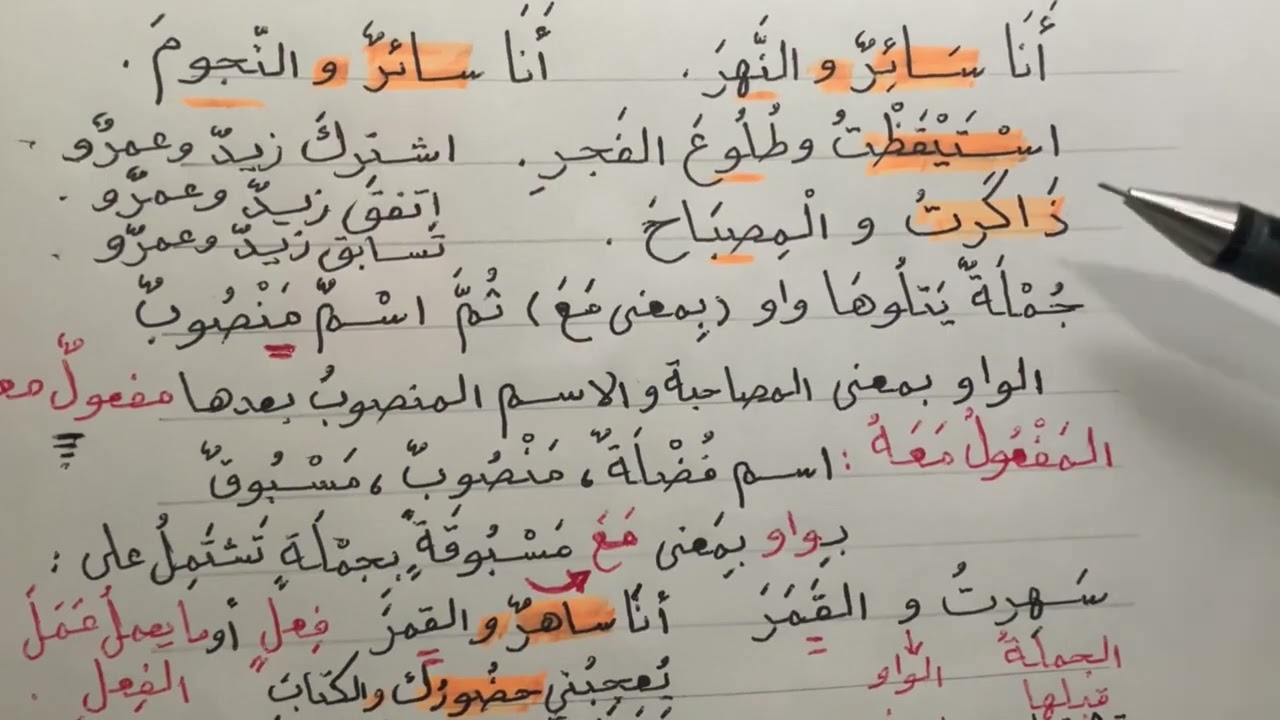 أَنَا سَائِرٌ و النَّهرَ . أَنَا سائرٌ و النّجومَ .
اسْتَيْقَظْتُ وطُلُوعَ الفَجرِ . اشتركَ زيدٌ وعمرٌو
اتفقَ زيدٌ وعمرٌو .
ذَاكَرتُ و الْمِصبَاحَ . تَسابق زيدٌ وعمرٌو .
جُمْلَةٌ يَتلُوهَا واو (بِمعنى مَعَ) ثُمَّ اسْمٌ مَنْصُوبٌ
الواو بمعنى المصاحبة و الاسم المنصوبُ بعدها مفعولٌ
المَفْعُولُ مَعَهُ : اسم فُضْلَةٌ ، مَنْصُوبٌ ، مَسْبُوقٌ
بِواو بِمَعنى مَعَ مَسْبُوقَةٍ بِجمْلَةٍ تَشتَمِلُ على :
سَهرتُ و القَمَرَ أنَا ساهرٌ و القمرَ فِعلٍ أو ما يعملُ عَمَلَ
الجملةُ الواو يُعجِبُني حضُورُكَ والكتابَ الفِعلِ .
قبلها